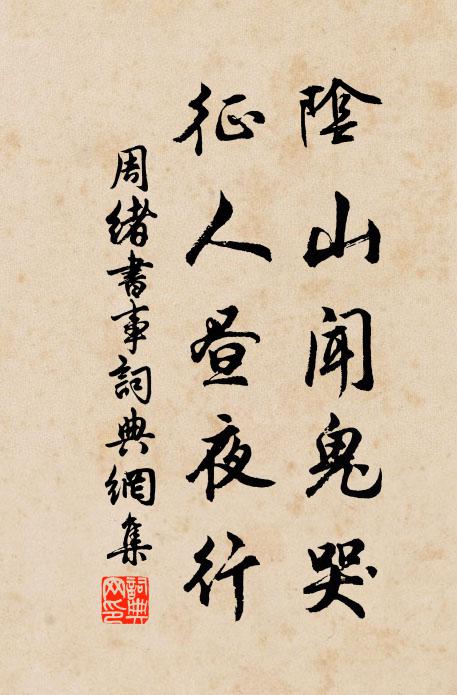 陰山聞鬼哭
征人昼夜行
周緒書事詞典網集
詞典
网印